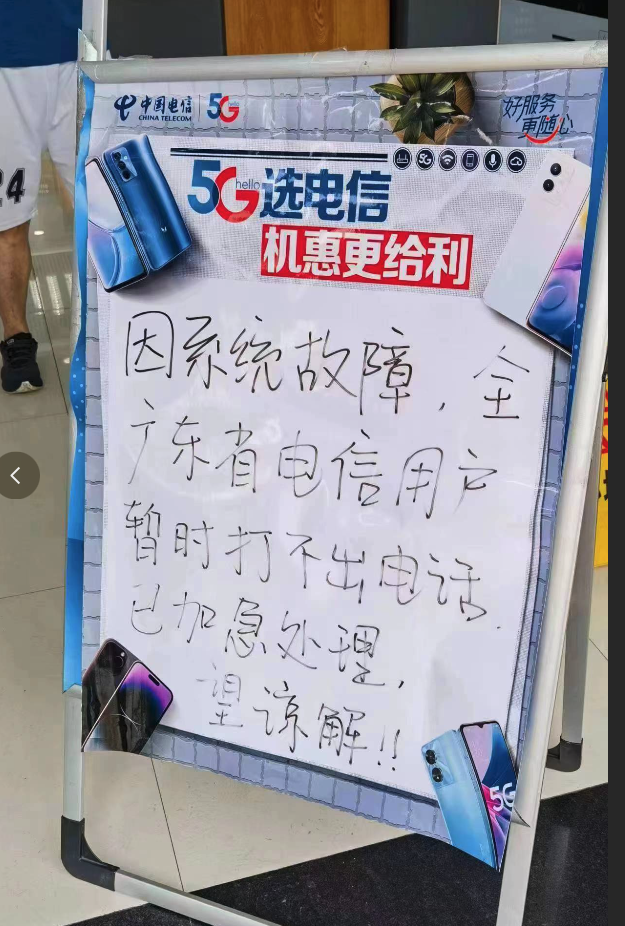 中国电信 5G
CHINA TELECOM
好服务
更随心
5G hello 选电信
机惠更给利
因系统故障，全
广东省电信用户
暂时打不出电话.
已加急处理，
望谅解!!
5G
24